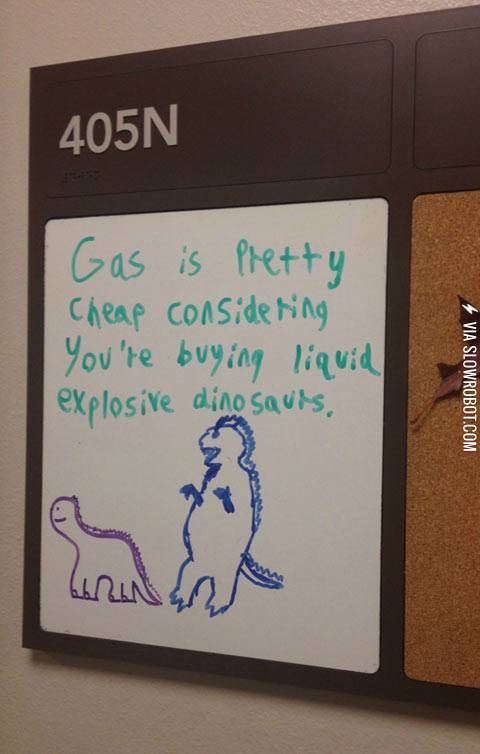 405N
Gas is Pretty
cheap considering
You're buying liquid
explosive dinosaurs.
VIA SLOWROBOT.COM